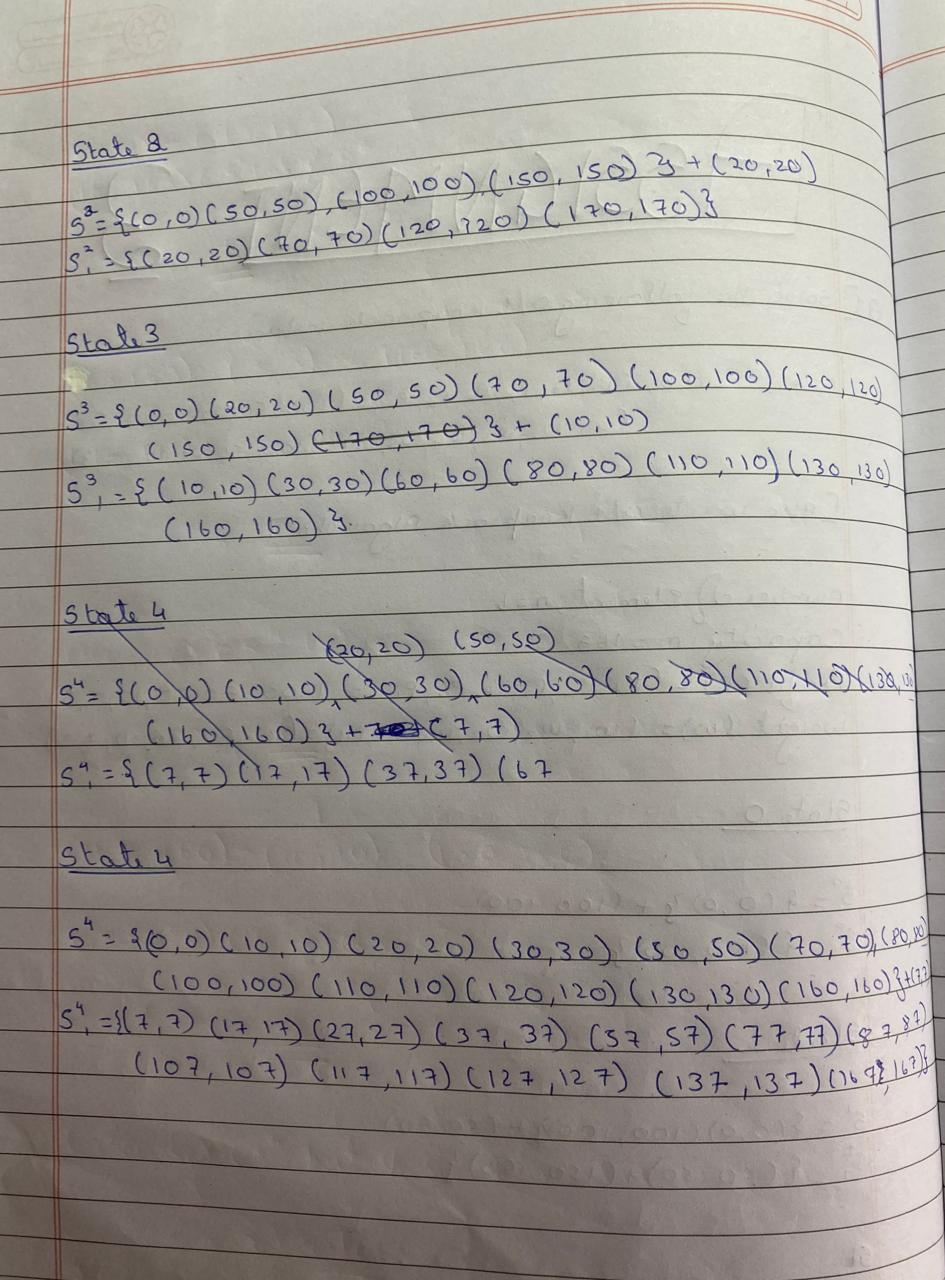 State 2
S² = {(0,0) (50,50), (100,100), (150,150) } + (20,20)
S²₁ = {(20,20) (70,70) (120,120) (170,170)}
State 3
S³ = {(0,0) (20,20) (50,50) (70,70) (100,100) (120,120)
(150,150) (170,170) } + (10,10)
S³₁ = {(10,10) (30,30) (60,60) (80,80) (110,110) (130,130)
(160,160) }.
State 4
(20,20) (50,50)
S⁴ = {(0,0) (10,10), (30,30), (60,60) (80,80) (110,110) (130,130
(160,160) } + (7,7)
S⁴₁ = {(7,7) (17,17) (37,37) (67
State 4
S⁴ = {(0,0) (10,10) (20,20) (30,30) (50,50) (70,70), (80,80)
(100,100) (110,110) (120,120) (130,130) (160,160) } + (7,7)
S⁴₁ = {(7,7) (17,17) (27,27) (37,37) (57,57) (77,77) (87,87)
(107,107) (117,117) (127,127) (137,137) (167,167)}